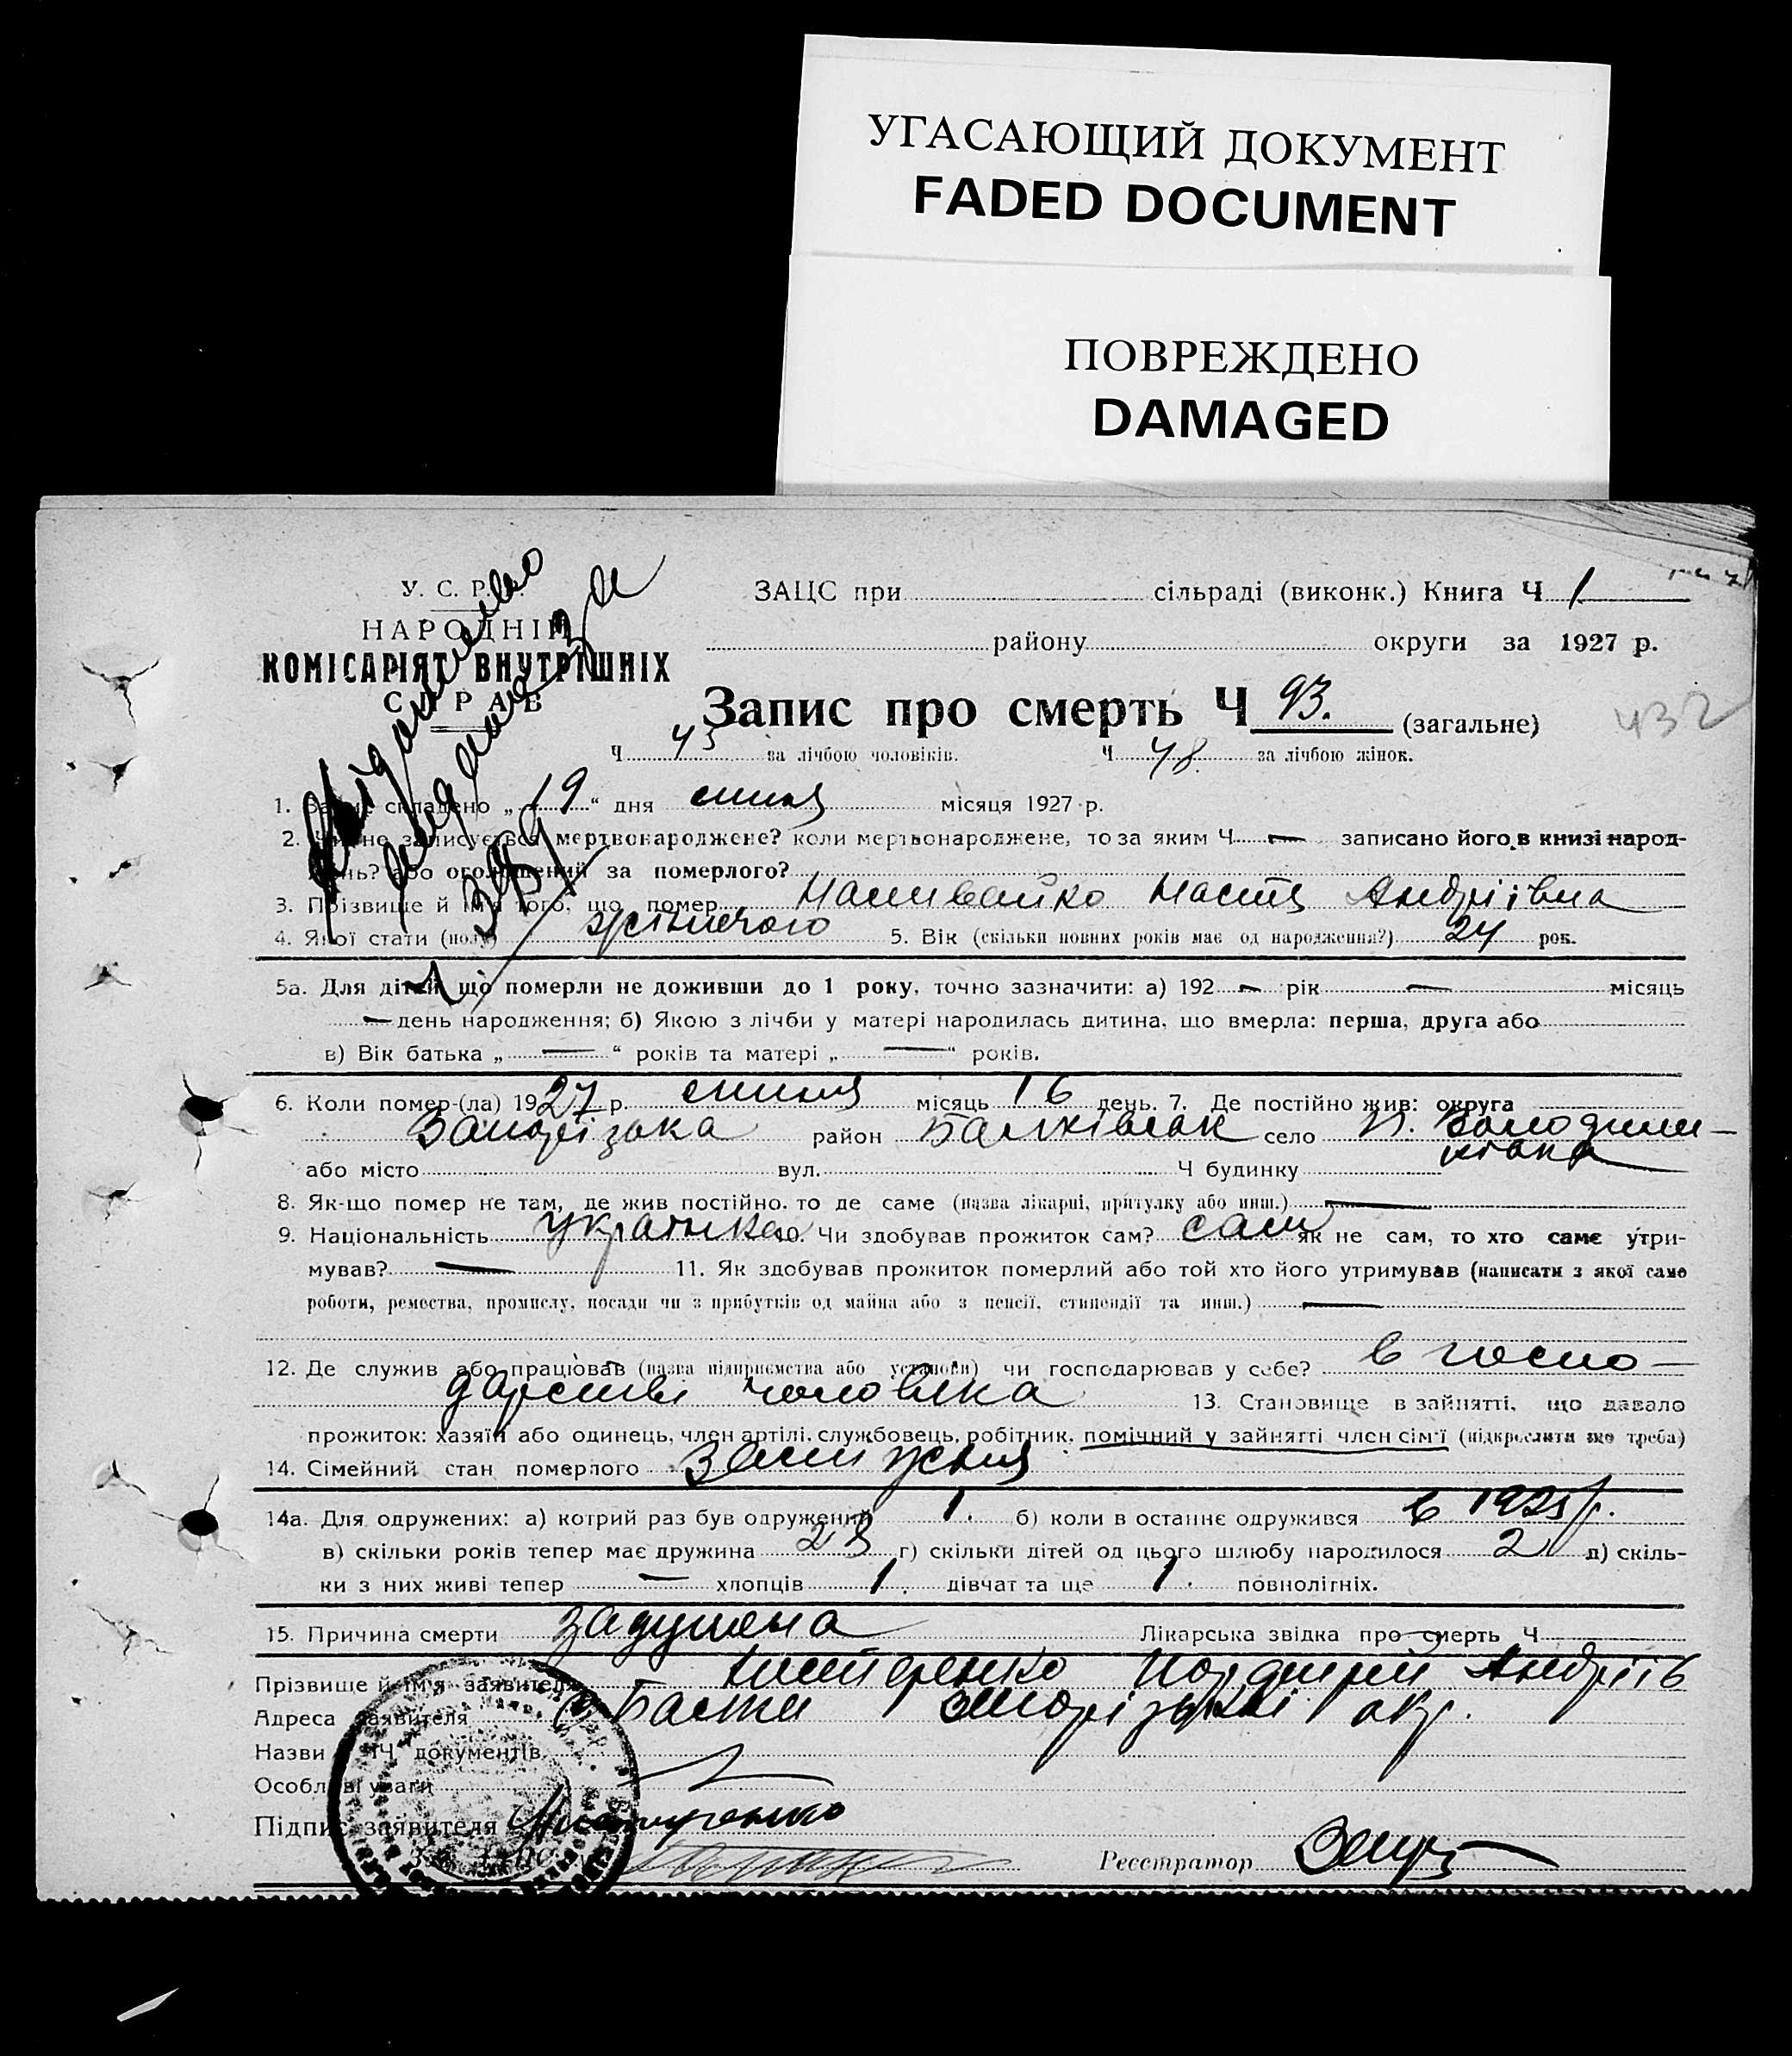 УГАСАЮЩИЙ ДОКУМЕНТ
FADED DOCUMENT
ПОВРЕЖДЕНО
DAMAGED
У. С. Р. Р.
НАРОДНІЙ
КОМІСАРІЯТ ВНУТРІШНІХ
СПРАВ
ЗАЦС при сільраді (виконк.) Книга Ч 1
району округи за 1927 р.
Запис про смерть Ч 93. (загальне)
432
Ч 45 за лічбою чоловіків. Ч 48. за лічбою жінок.
1. Запис складено „19“ дня липня місяця 1927 р.
2. Чи не записується мертвонароджене? коли мертвонароджене, то за яким Ч — записано його в книзі народ-
жень? або оголошений за померлого?
3. Прізвище й ім'я того, що помер Наливайко Настя Андріівна
4. Якої стати (полу) жіночого 5. Вік (скільки повних років має од народження?) 24 рок.
5а. Для дітей що померли не доживши до 1 року, точно зазначити: а) 192 — рік — місяць
— день народження; б) Якою з лічби у матері народилась дитина, що вмерла: перша, друга або
в) Вік батька „ — “ років та матері „ — “ років.
6. Коли помер-(ла) 1927 р. липня місяць 16 день. 7. Де постійно жив: округа
Запорізька район Балківськ село Н. Володими-
рівка
або місто вул. Ч будинку
8. Як-що помер не там, де жив постійно, то де саме (назва лікарні, притулку або инш.) —
9. Національність українка 10. Чи здобував прожиток сам? сам як не сам, то хто саме утри-
мував? — 11. Як здобував прожиток померлий або той хто його утримував (написати з якої само
роботи, ремества, промислу, посади чи з прибутків од майна або з пенсії, стипендії та инш.) —
12. Де служив або працював (назва підприємства або установи) чи господарював у себе? в госпо-
дарстві чоловіка 13. Становище в зайнятті, що давало
прожиток: хазяїн або одинець, член артілі, службовець, робітник, помічний у зайнятті член сім'ї (підкреслити що треба)
14. Сімейний стан померлого Замужня
14а. Для одружених: а) котрий раз був одружений 1. б) коли в останнє одружився в 1925 р.
в) скільки років тепер має дружина 23 г) скільки дітей од цього шлюбу народилося 2 д) скіль-
ки з них живі тепер — хлопців 1. дівчат та ще 1. повнолітніх.
15. Причина смерти задушена Лікарська звідка про смерть Ч
Прізвище й ім'я заявителя Андріів
Адреса заявителя с. Балки Запорізькі окр.
Назви й ЧЧ документів
Особливі уваги
Підпис заявителя
Реєстратор